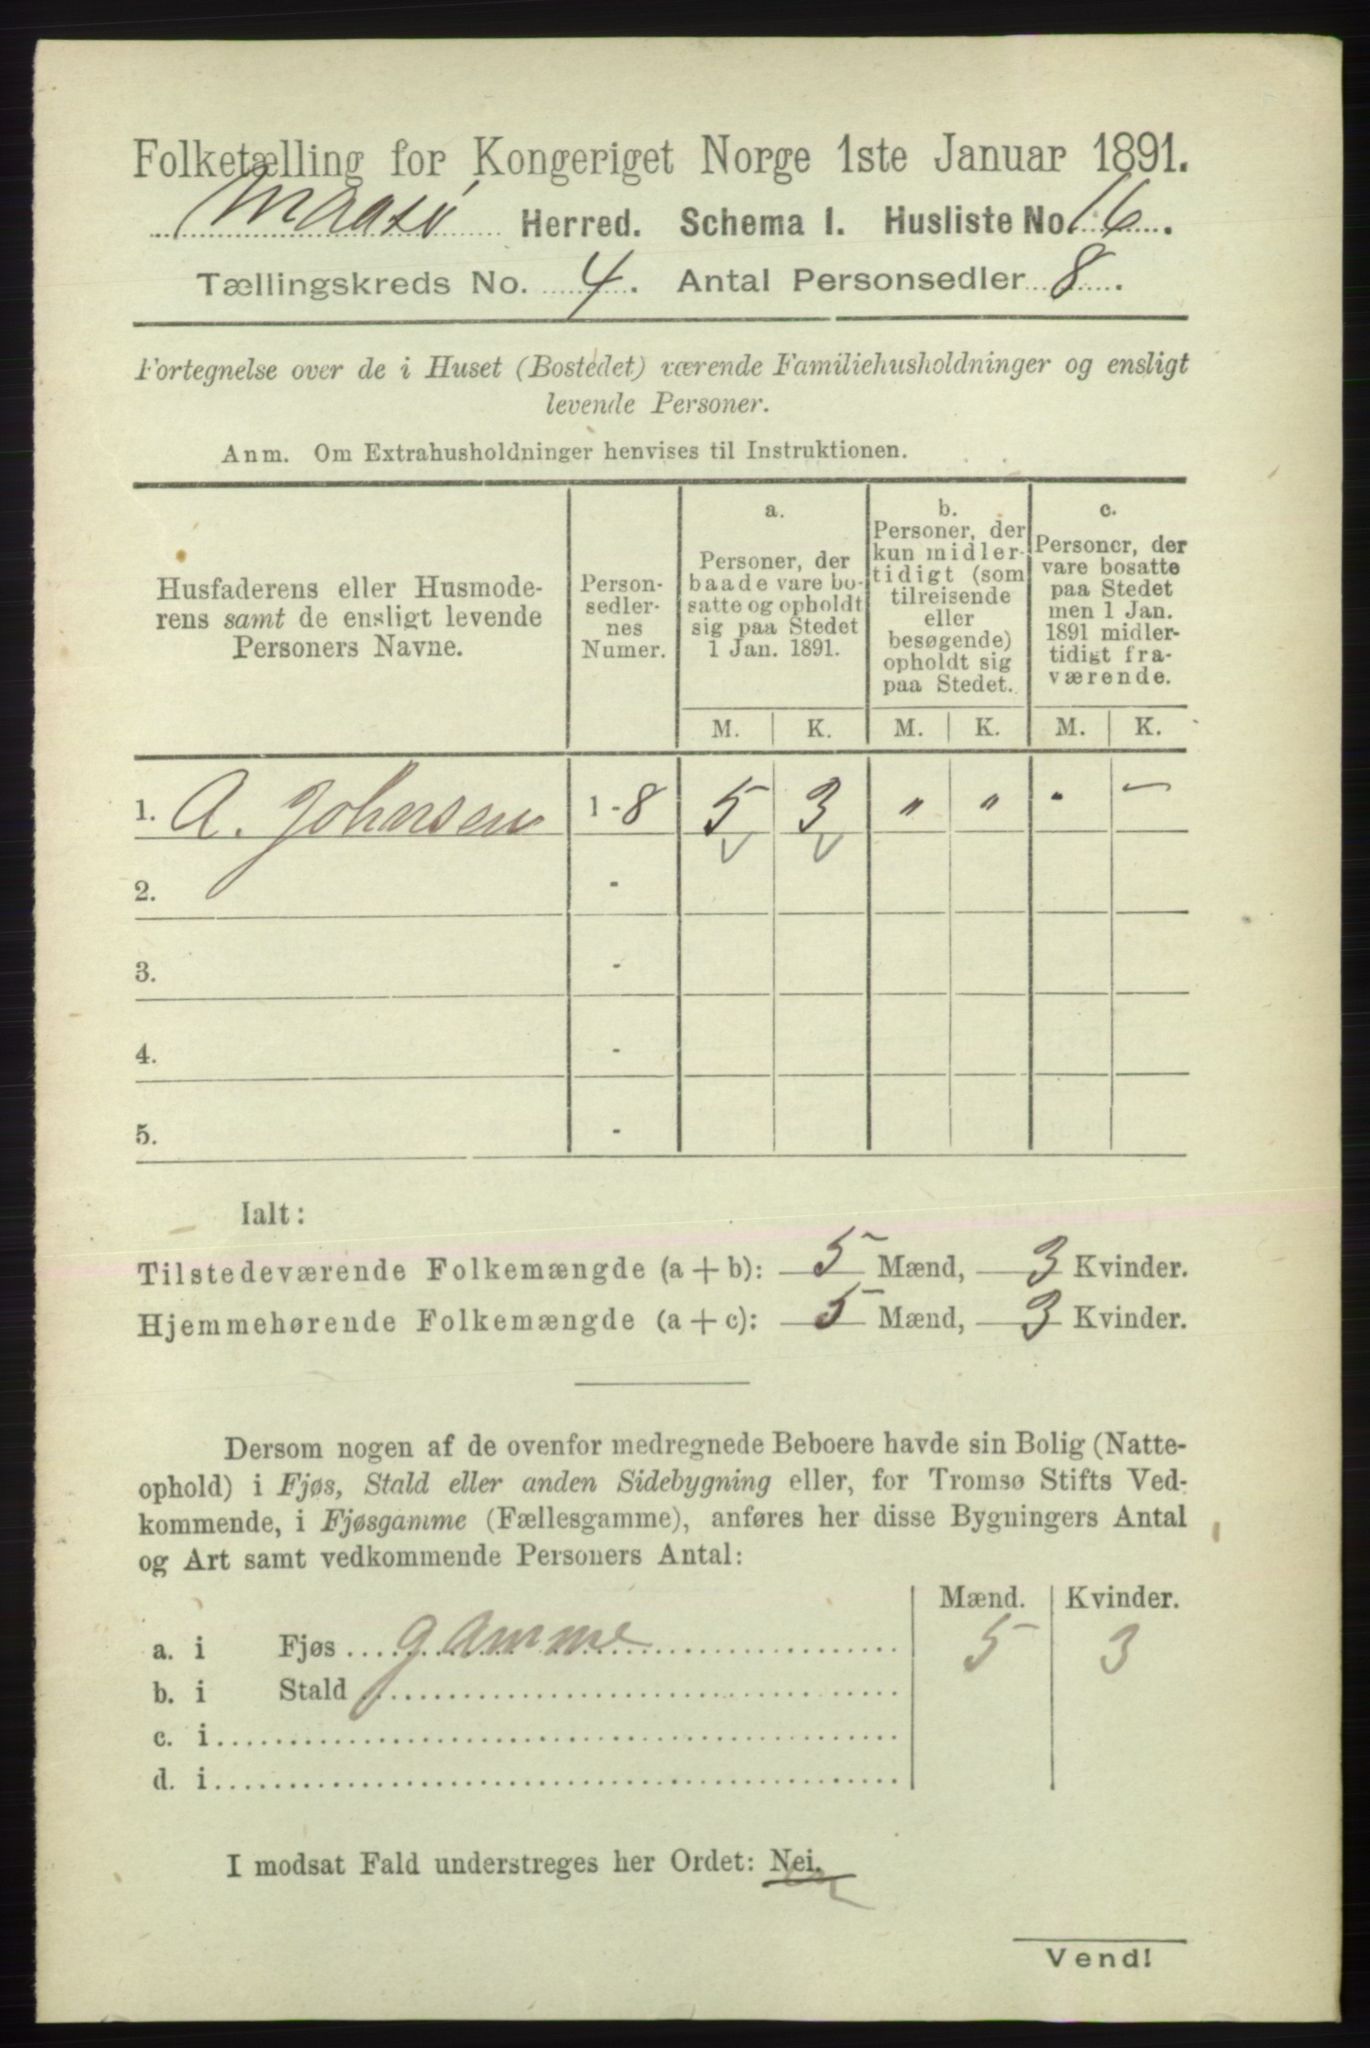 Folketælling for Kongeriget Norge 1ste Januar 1891.
Maasö Herred. Schema I. Husliste No. 16.
Tællingskreds No. 4. Antal Personsedler 8.
Fortegnelse over de i Huset (Bostedet) værende Familiehusholdninger og ensligt
levende Personer.
Anm. Om Extrahusholdninger henvises til Instruktionen.
Husfaderens eller Husmode-
rens samt de ensligt levende
Personers Navne.
Person-
sedler-
nes
Numer.
a.
Personer, der
baade vare bo-
satte og opholdt
sig paa Stedet
1 Jan. 1891.
b.
Personer, der
kun midler-
tidigt (som
tilreisende
eller
besøgende)
opholdt sig
paa Stedet.
c.
Personer, der
vare bosatte
paa Stedet
men 1 Jan.
1891 midler-
tidigt fra-
værende.
M. K. M. K. M. K.
1. A. Johansen 1-8 5 3 " " " -
2. -
3. -
4. -
5. -
Ialt:
Tilstedeværende Folkemængde (a+b): 5 Mænd, 3 Kvinder.
Hjemmehørende Folkemængde (a+c): 5 Mænd, 3 Kvinder.
Dersom nogen af de ovenfor medregnede Beboere havde sin Bolig (Natte-
ophold) i Fjøs, Stald eller anden Sidebygning eller, for Tromsø Stifts Ved-
kommende, i Fjøsgamme (Fællesgamme), anføres her disse Bygningers Antal
og Art samt vedkommende Personers Antal:
Mænd. Kvinder.
a. i Fjøs gamme 5 3
b. i Stald
c. i
d. i
I modsat Fald understreges her Ordet: Nei.
Vend!